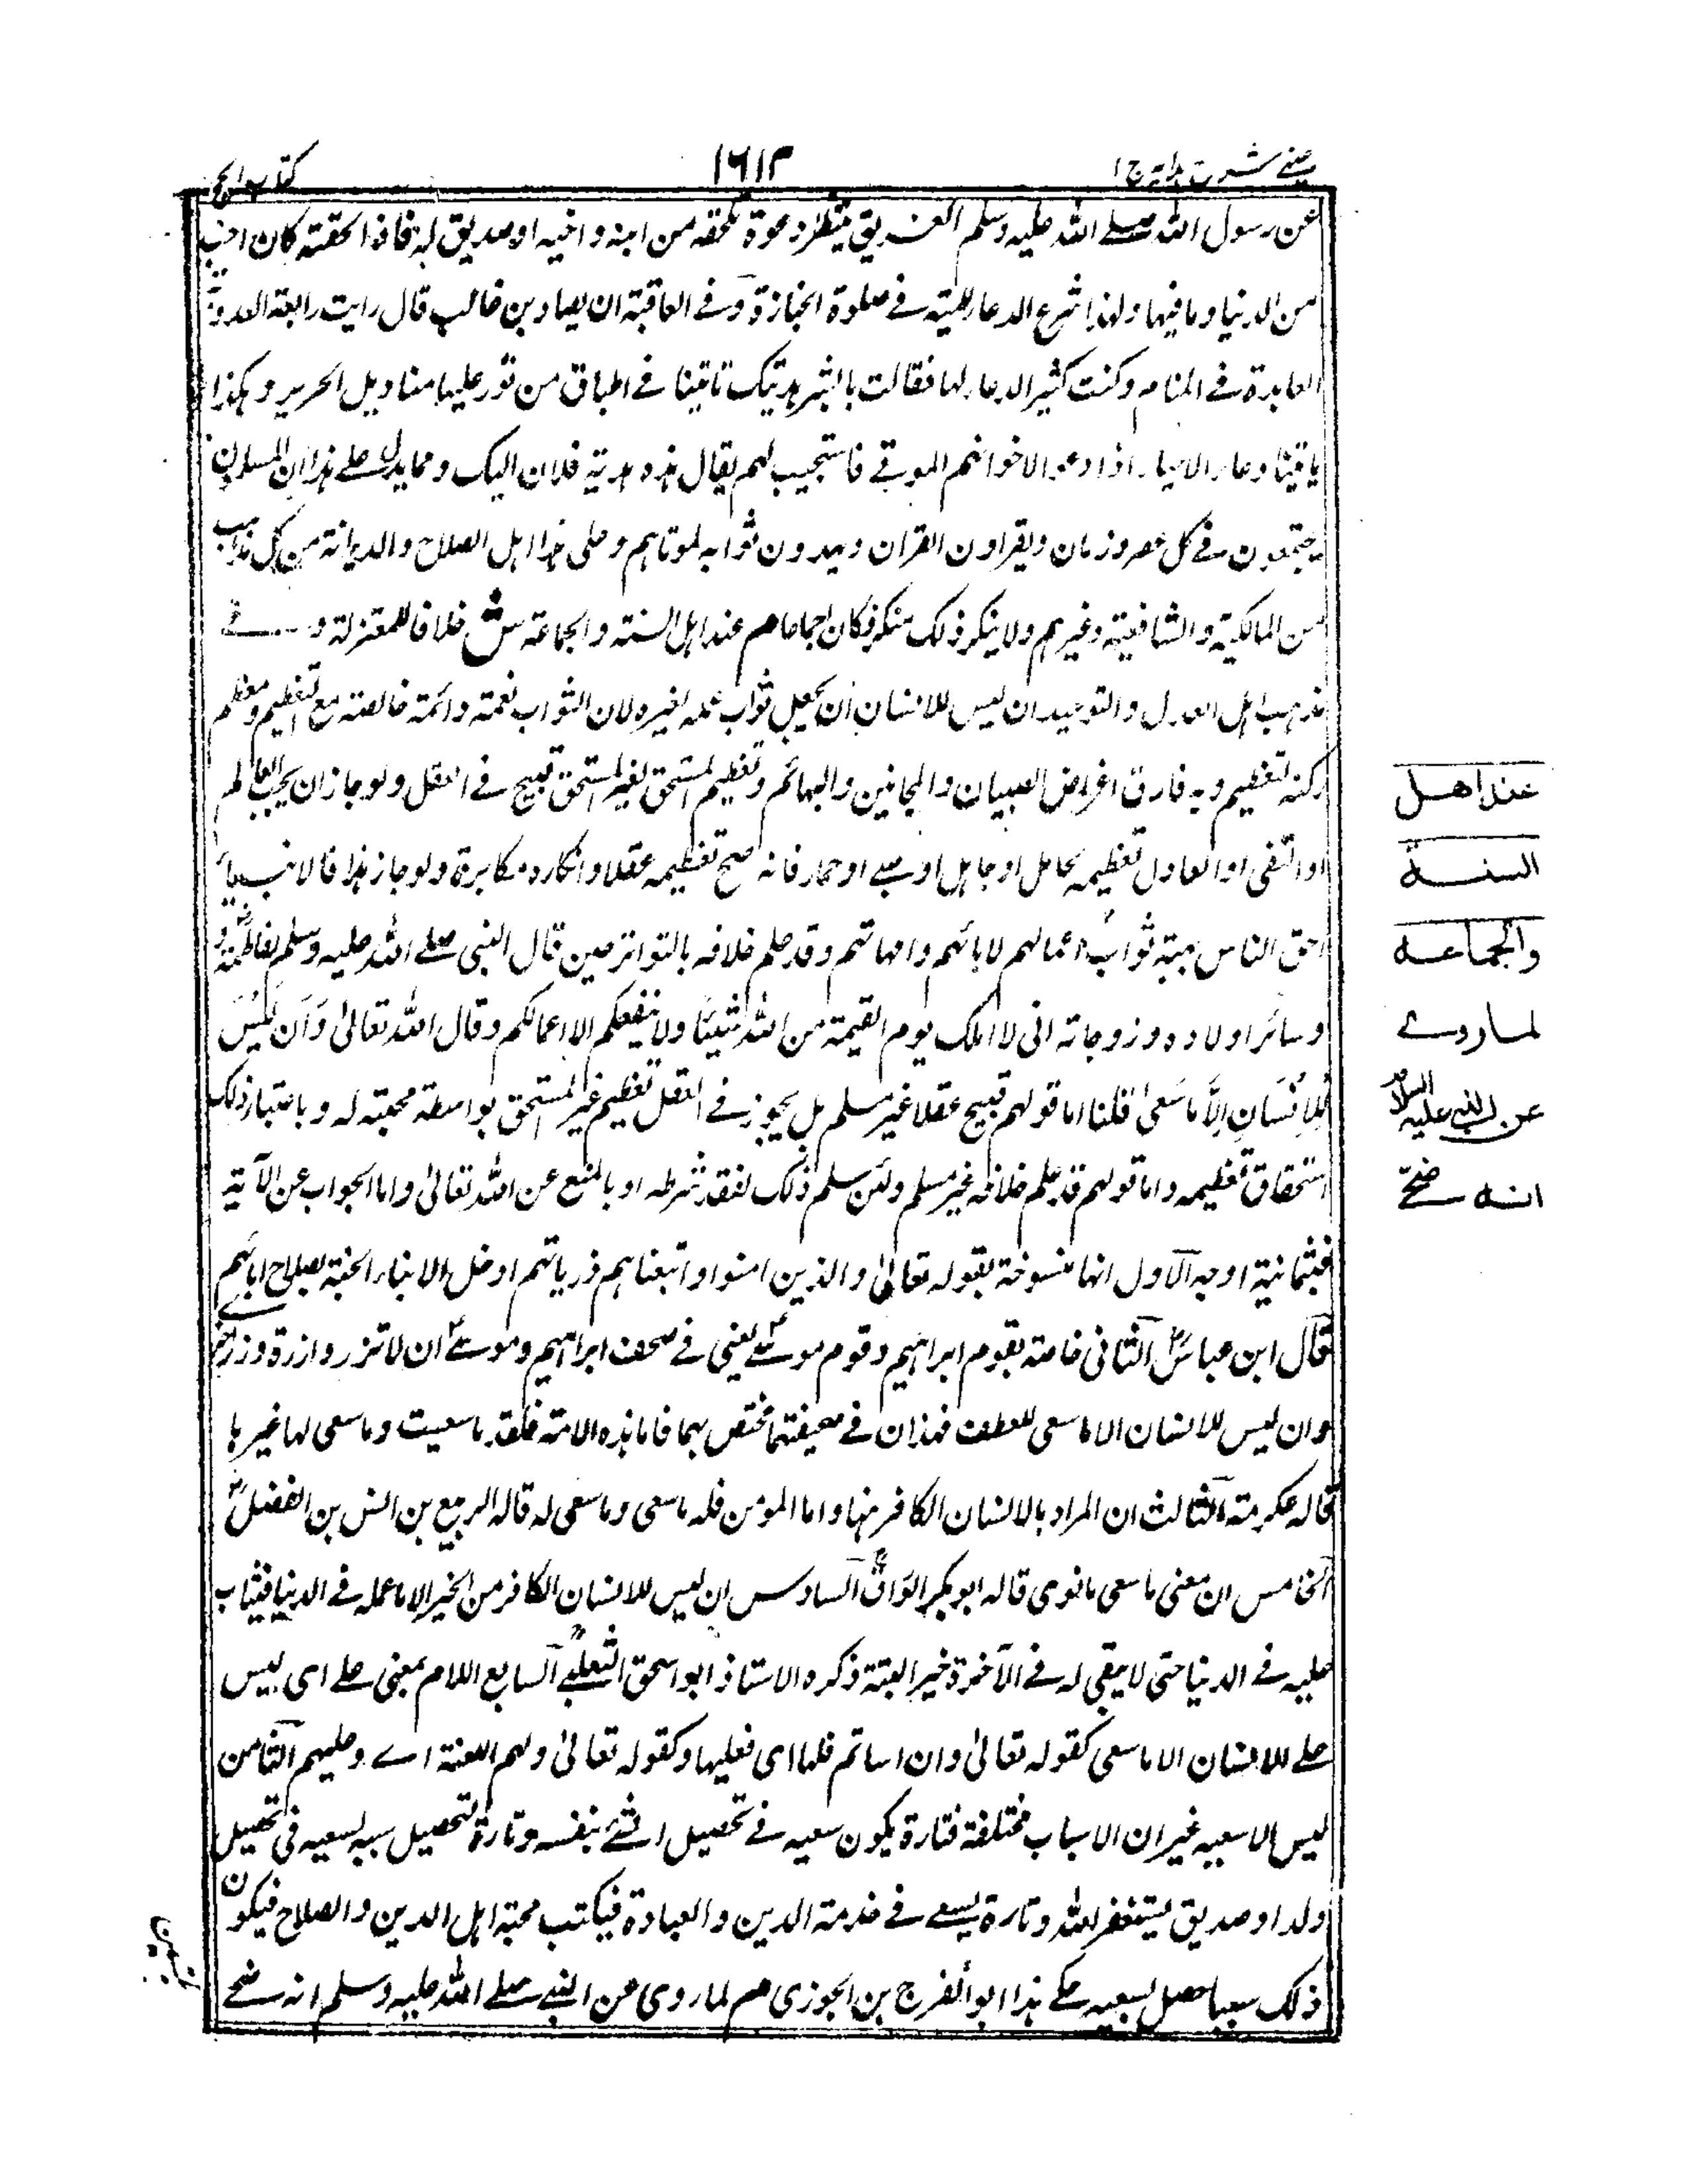 عینی شرح ہدایہ ج ١
١٦١٢
کتاب الحج
عن رسول الله صلے الله علیه وسلم الغریق ینتظر دعوة تلحقه من ابنه و اخیه او صدیق له فاذا لحقته کان احب
من الدنیا وما فیها ولهذا شرع الدعاء للمیت فے صلوة الجنازة وفے العاقبة ان بن غالب قال رایت رابعة العدویة
العابدة فے المنام وکنت کثیر الدعاء لها فقالت یا بشر هدیتک تاتینا فے اطباق من نور علیها منادیل الحریر وهکذا
یاتینا دعاء الاحیاء اذا دعوا لاخوانهم الموتے فاستجیب لهم یقال هذه هدیة فلان الیک ومما یدل علے هذا ان المسلمین
یجتمعون فے کل عصر وزمان ویقراون القران ویهدون ثوابه لموتاهم وعلی هذا اهل الصلاح والدیانة من کل مذهب
من المالکیة والشافعیة وغیرهم ولا ینکر ذلک منکر فکان اجماعا م عند اهل السنة والجماعة ش خلافا للمعتزلة وفے
مذهب اهل العدل والتوحید ان لیس للانسان ان یجعل ثواب عمله لغیره لان الثواب نعمة دائمة خالصة مع التعظیم ومعظم
رکنه التعظیم وبه فارق اغراض الصبیان والمجانین والبهائم وتعظیم المستحق لغیر المستحق قبیح فے العقل ولو جاز ان یجب العالم
او التقی او العادل تعظیمه لجاهل او صبے او حمار فانه صح تعظیمه عقلا وانکاره مکابرة ولو جاز هذا فالانبیاء
احق الناس هبة ثواب اعمالهم لابائهم وامهاتهم وقد علم خلافه بالتواتر حین قال النبی صلے الله علیه وسلم لفاطمةؓ و
وسائر اولاده وزوجاته انی لا املک یوم القیمة من الله شیئا ولا ینفعکم الا اعمالکم وقال الله تعالیٰ وَاَن لَّیْسَ
لِلْاِنْسَانِ اِلَّا مَا سَعیٰ قلنا اما قولهم قبیح عقلا غیر مسلم بل یجوز فے العقل تعظیم غیر المستحق بواسطة محبته له وباعتبار ذلک
استحقاق تعظیمه واما قولهم قد علم خلافه غیر مسلم ولئن سلم ذلک لفقد شرطه او بالمنع عن الله تعالیٰ واما الجواب عن الآیة
فبثمانیة اوجه الآول انها منسوخة بقوله تعالیٰ والذین امنوا واتبعناهم ذریاتهم ادخل الابناء الجنة بصلاح ابائهم
قاله ابن عباسؓ الثانی خاصة بقوم ابراهیم وقوم موسےٰ یعنی فے صحف ابراهیم وموسےٰ ان لا تزر وازرة وزر اخرے
وان لیس للانسان الا ما سعی للعطف فهذان فے صحیفتهما مختص بهما فاما هذه الامة فلها ما سعیت وما سعی لها غیرها
قاله عکرمة الثالث ان المراد بالانسان الکافر ههنا واما المومن فله ما سعی وما سعی له قاله الربیع بن انس بن الفضلؒ
الخامس ان معنی ما سعی ما نوی قاله ابو بکر الوراقؒ السادس ان لیس للانسان الکافر من الخیر الا ما عمله فے الدنیا فیثاب
علیه فے الدنیا حتی لا یبقی له فے الآخرة خیر البتة ذکره الاستاذ ابو اسحق الثعلبےؒ السابع اللام بمعنی علے ای لیس
علے الانسان الا ما سعی کقوله تعالیٰ وان اساتم فلها ای فعلیها وکقوله تعالیٰ ولهم اللعنة اے وعلیهم الثامن
لیس الا سعیه غیر ان الاسباب مختلفة فتارة یکون سعیه فے تحصیل الشئے بنفسه وتارة لتحصیل سببه لسعیه فی تحصیل
ولد او صدیق یستغفر له وتارة یسعے فے خدمة الدین والعبادة فیکتسب محبة اهل الدین والصلاح فیکون
ذلک سببا حصل بسعیه حکے هذا ابو الفرج بن الجوزی م لما روی عن النبے صلے الله علیه وسلم انه ضحے
عند اهل
السنة
والجماعة
لما روے
عن النبی علیه السلام
انه ضحّے